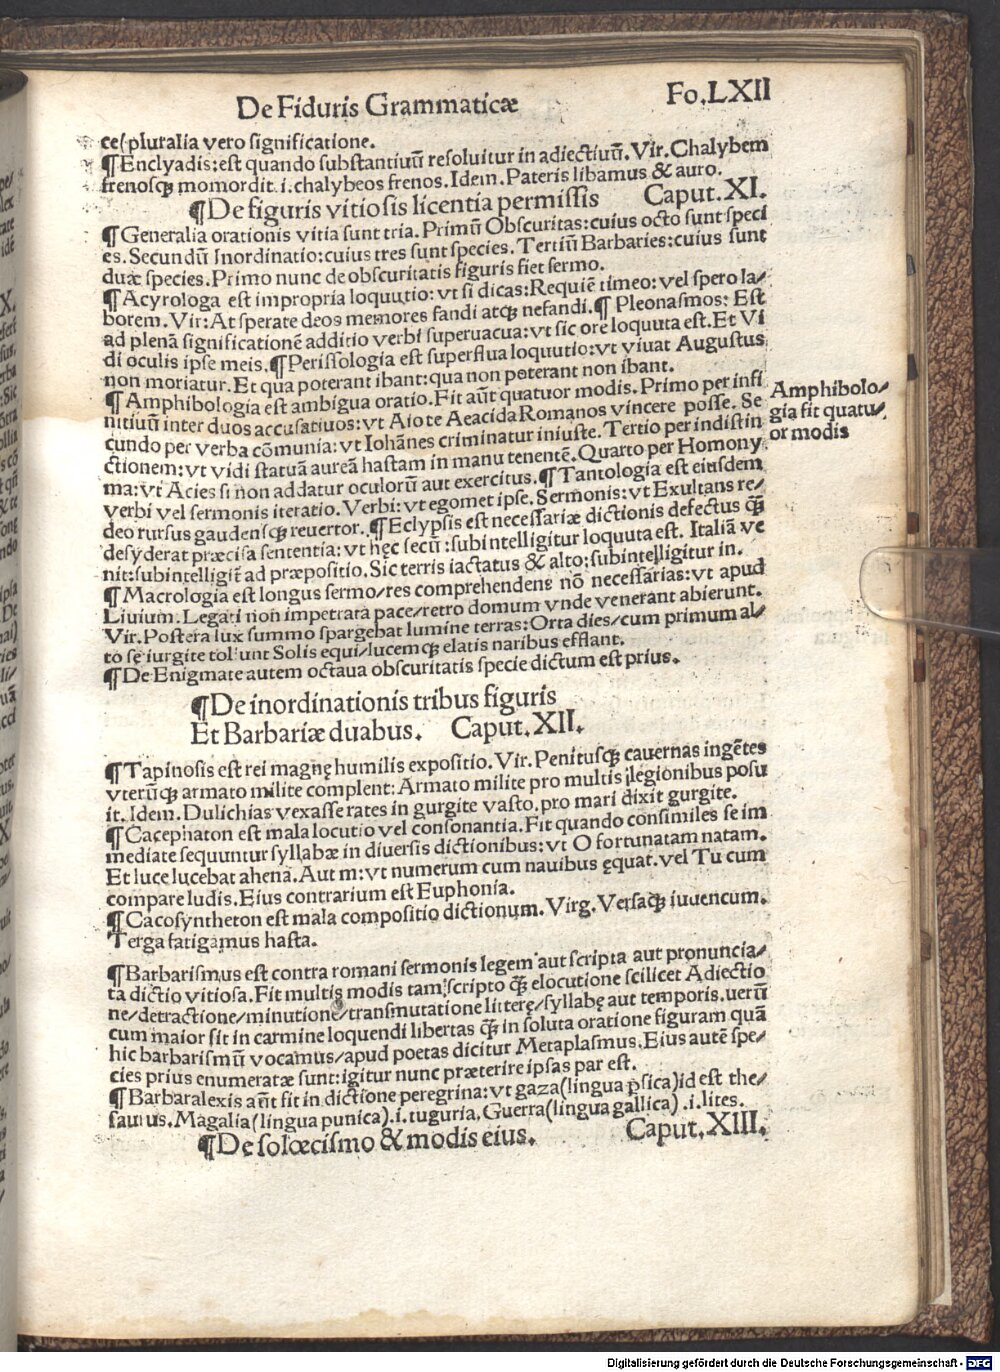 De Fiduris Grammaticæ Fo.LXII
ce/pluralia vero significatione.
¶Enclyadis:est quando substantiuũ resoluitur in adiectiuũ.Vir.Chalybem
frenosq3 momordit.i.chalybeos frenos.Idem.Pateris libamus & auro.
¶De figuris vitiosis licentia permissis Caput.XI.
¶Generalia orationis vitia sunt tria.Primũ Obscuritas:cuius octo sunt speci
es.Secundũ Inordinatio:cuius tres sunt species.Tertiũ Barbaries:cuius sunt
duæ species.Primo nunc de obscuritatis figuris fiet sermo.
¶Acyrologa est impropria loquutio:vt si dicas:Requiẽ timeo:vel spero la/
borem.Vir:At sperate deos memores fandi atq3 nefandi.¶Pleonasmos: Est
ad plenã significationẽ additio verbi superuacua:vt sic ore loquuta est.Et Vi
di oculis ipse meis.¶Perissologia est superflua loquutio:vt viuat Augustus
non moriatur.Et qua poterant ibant:qua non poterant non ibant.
¶Amphibologia est ambigua oratio.Fit aũt quatuor modis.Primo per infi
nitiuũ inter duos accusatiuos:vt Aio te Aeacida Romanos vincere posse. Se
cundo per verba cõmunia:vt Iohãnes criminatur iniuste.Tertio per indistin
ctionem:vt vidi statuã aureã hastam in manu tenentẽ.Quarto per Homony
ma:vt Acies si non addatur oculorũ aut exercitus.¶Tantologia est eiusdem
verbi vel sermonis iteratio.Verbi:vt egomet ipse.Sermonis:vt Exultans re/
deo rursus gaudensq3 reuertor.¶Eclypsis est necessariæ dictionis defectus q̃3
desyderat præcisa sententia:vt hęc secũ:subintelligitur loquuta est. Italiã ve
nit:subintelligit̃ ad præpositio.Sic terris iactatus & alto:subintelligitur in.
¶Macrologia est longus sermo/res comprehendens nõ necessarias:vt apud
Liuium.Legati non impetrata pace/retro domum vnde venerant abierunt.
Vir.Postera lux summo spargebat lumine terras:Orta dies/cum primum al/
to se iurgite tollunt Solis equi/lucemq3 elatis naribus efflant.
¶De Enigmate autem octaua obscuritatis specie dictum est prius.
Amphibolo/
gia fit quatu/
or modis
¶De inordinationis tribus figuris
Et Barbariæ duabus. Caput.XII.
¶Tapinosis est rei magnę humilis expositio.Vir.Penitusq3 cauernas ingẽtes
vterũq3 armato milite complent:Armato milite pro multis legionibus posu
it.Idem.Dulichias vexasse rates in gurgite vasto.pro mari dixit gurgite.
¶Cacephaton est mala locutio vel consonantia.Fit quando consimiles se im
mediate sequuntur syllabæ in diuersis dictionibus:vt O fortunatam natam.
Et luce lucebat ahena.Aut m:vt numerum cum nauibus ęquat.vel Tu cum
compare ludis.Eius contrarium est Euphonia.
¶Cacosyntheton est mala compositio dictionum.Virg.Versaq3 iuuencum.
Terga fatigamus hasta.
¶Barbarismus est contra romani sermonis legem aut scripta aut pronuncia/
ta dictio vitiosa.Fit multis modis tam scripto q̃3 elocutione scilicet Adiectio
ne/detractione/minutione/transmutatione litterę/syllabę aut temporis.uerũ
cum maior sit in carmine loquendi libertas q̃3 in soluta oratione figuram quã
hic barbarismũ vocamus/apud poetas dicitur Metaplasmus.Eius autẽ spe/
cies prius enumeratæ sunt:igitur nunc præterire ipsas par est.
¶Barbaralexis aũt fit in dictione peregrina:vt gaza(lingua psica)id est the/
saurus.Magalia(lingua punica).i.tuguria.Guerra(lingua gallica).i.lites.
¶De solœcismo & modis eius. Caput.XIII.
Digitalisierung gefördert durch die Deutsche Forschungsgemeinschaft - DFG